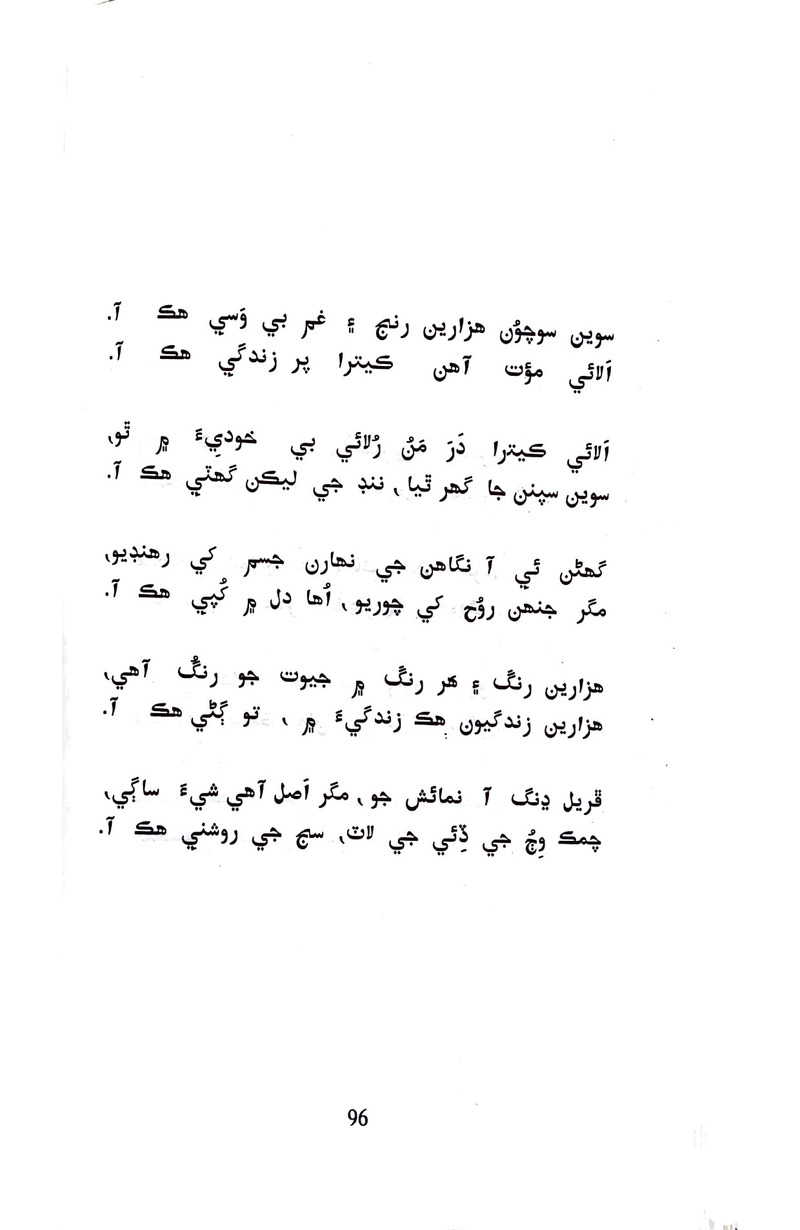 سوين سوچوُن هزارين رنج ۽ غم بي وَسي هڪ آ.
اَلائي مؤت آهن ڪيترا پر زندگي هڪ آ.
اَلائي ڪيترا دَرَ مَنُ رُلائي بي خوديءَ ۾ ٿو،
سوين سپنن جا گهر ٿيا، ننڊ جي ليڪن گهٽي هڪ آ.
گهڻن ئي آ نگاهن جي نهارن جسم کي رهنڊيو،
مگر جنهن روُح کي چوريو، اُها دل ۾ کُپي هڪ آ.
هزارين رنگ ۽ هَر رنگ ۾ جيوت جو رنگُ آهي،
هزارين زندگيون هڪ زندگيءَ ۾، تو ڳڻي هڪ آ.
ڦريل ڍنگ آ نمائش جو، مگر اَصل آهي شيءَ ساڳي،
چمڪ وِڄُ جي ڏِئي جي لاٽ، سج جي روشني هڪ آ.
96